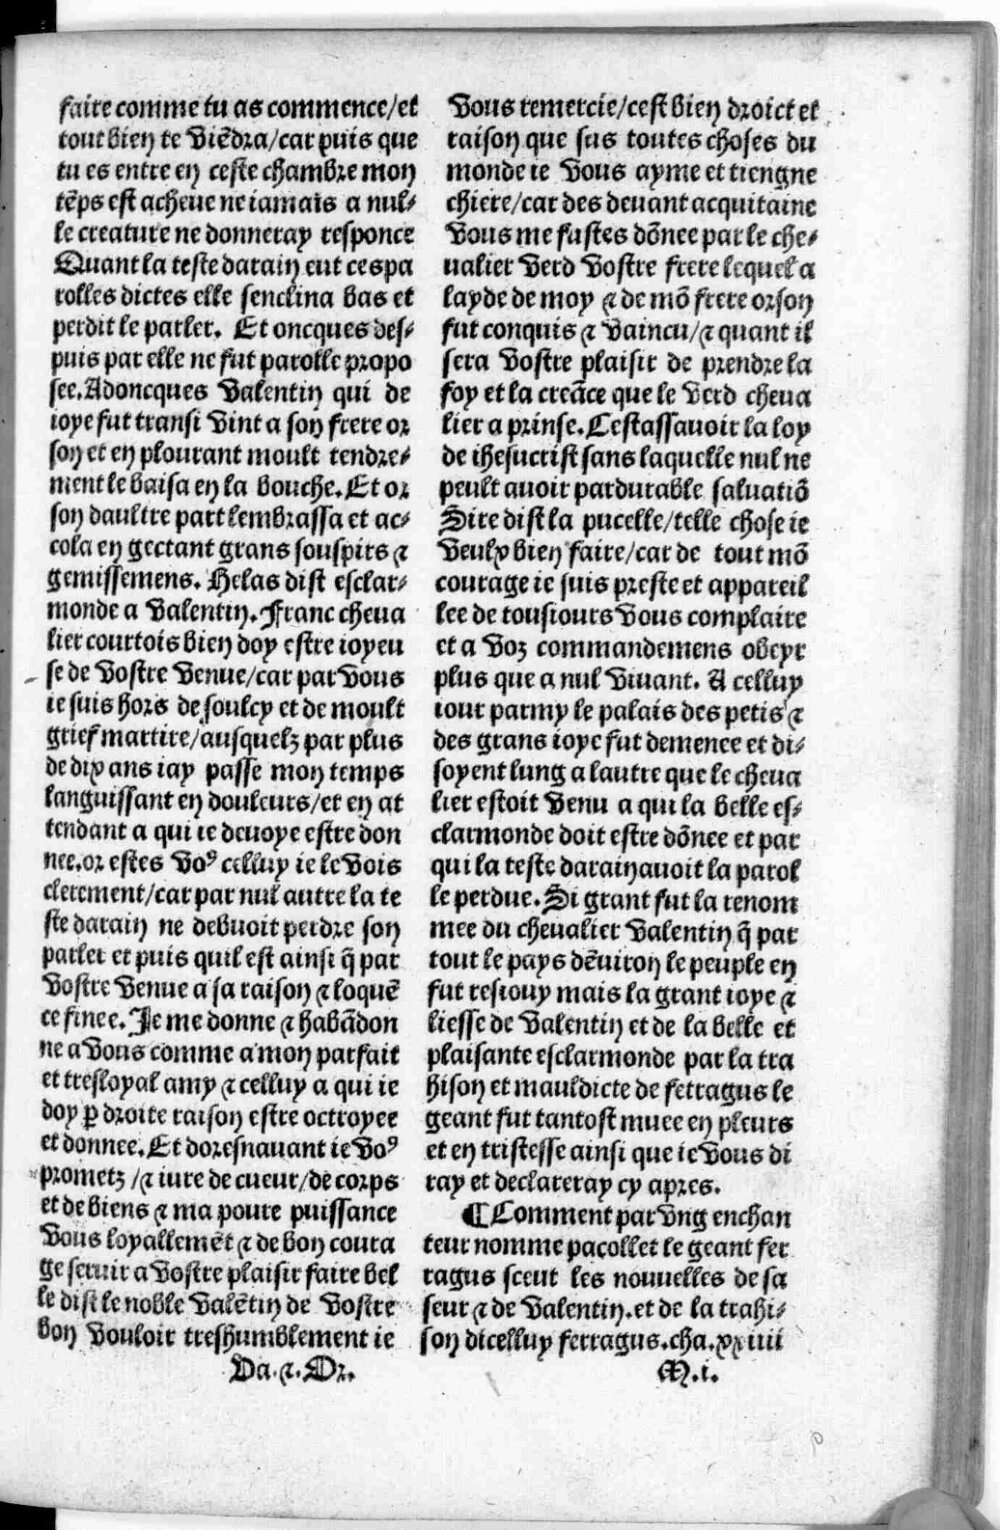 faire comme tu as commence/et
tout bien te viẽdra/car puis que
tu es entre en ceste chambre mon
tẽps est acheue ne iamais a nul-
le creature ne donneray responce
Quant la teste darain eut ces pa
rolles dictes elle senclina bas et
perdit le parler. Et oncques des-
puis par elle ne fut parolle propo
see. Adoncques Valentin qui de
ioye fut transi vint a son frere or
son et en plourant moult tendre-
ment le baisa en la bouche. Et or
son daultre part lembrassa et ac-
cola en gectant grans souspirs ⁊
gemissemens. Helas dist esclar-
monde a Valentin. Franc cheua
lier courtois bien doy estre ioyeu
se de vostre venue/car par vous
ie suis hors de soulcy et de moult
grief martire/ausquelz par plus
de dix ans iay passe mon temps
languissant en douleurs/et en at
tendant a qui ie deuoye estre don
nee. or estes voꝰ celluy ie le vois
clerement/car par nul autre la te
ste darain ne debuoit perdre son
parler et puis quil est ainsi q̃ par
vostre venue a sa raison ⁊ loquẽ
ce finee. Je me donne ⁊ habãdon
ne a vous comme a mon parfait
et tresloyal amy ⁊ celluy a qui ie
doy ꝑ droite raison estre octroyee
et donnee. Et doresnauant ie voꝰ
prometz/⁊ iure de cueur/de corps
et de biens ⁊ ma poure puissance
vous loyallemẽt ⁊ de bon coura
ge seruir a vostre plaisir faire bel
le dist le noble Valẽtin de vostre
bon vouloir treshumblement ie
Va. ⁊. Or.
vous remercie/cest bien droict et
raison que sus toutes choses du
monde ie vous ayme et tiengne
chiere/car des deuant acquitaine
vous me fustes dõnee par le che-
ualier verd vostre frere lequel a
layde de moy ⁊ de mõ frere orson
fut conquis ⁊ vaincu/⁊ quant il
sera vostre plaisir de prendre la
foy et la creãce que le verd cheua
lier a prinse. Cestassauoir la loy
de ihesucrist sans laquelle nul ne
peult auoir pardurable saluatiõ
Sire dist la pucelle/telle chose ie
veulx bien faire/car de tout mõ
courage ie suis preste et appareil
lee de tousiours vous complaire
et a voz commandemens obeyr
plus que a nul viuant. A celluy
iour parmy le palais des petis ⁊
des grans ioye fut demenee et di-
soyent lung a lautre que le cheua
lier estoit venu a qui la belle es-
clarmonde doit estre dõnee et par
qui la teste darain auoit la parol
le perdue. Si grant fut la renom
mee du cheualier Valentin q̃ par
tout le pays dẽuiron le peuple en
fut resiouy mais la grant ioye ⁊
liesse de Valentin et de la belle et
plaisante esclarmonde par la tra
hison et mauldicte de ferragus le
geant fut tantost muee en pleurs
et en tristesse ainsi que ie vous di
ray et declareray cy apres.
¶ Comment par vng enchan
teur nomme pacollet le geant fer
ragus sceut les nouuelles de sa
seur ⁊ de Valentin. et de la trahi-
son dicelluy ferragus. cha. xxiiii
M.i.